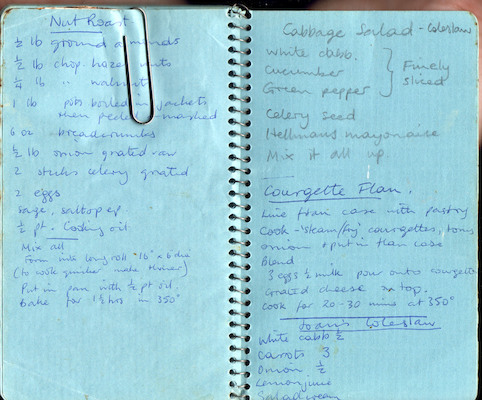 Nut Roast
½ lb ground almonds
½ lb chop. hazelnuts
¼ lb " walnuts
1 lb pots boiled in jackets
then peeled mashed
6 oz breadcrumbs
½ lb onion grated raw
2 sticks celery grated
2 eggs
Sage, salt & pep
½ pt. Cooking oil.
Mix all
Form into long roll 16" x 6 dia
(to cook quicker make thinner)
Put in pan with ½ pt oil.
Bake for 1½ hrs in 350°
Cabbage Salad - Coleslaw
White cabb.
Cucumber
Green pepper
} Finely sliced
Celery seed
Hellmans mayonaise
Mix it all up.
Courgette Flan.
Line flan case with pastry
Cook - steam/fry courgettes, toms
onion & put in flan case
Blend
3 eggs ½ milk pour onto courgette
Grated cheese on top.
Cook for 20-30 mins at 350°
Joan's Coleslaw
White cabb ½
Carrots 3
Onion ½
Lemon juice
Salad cream